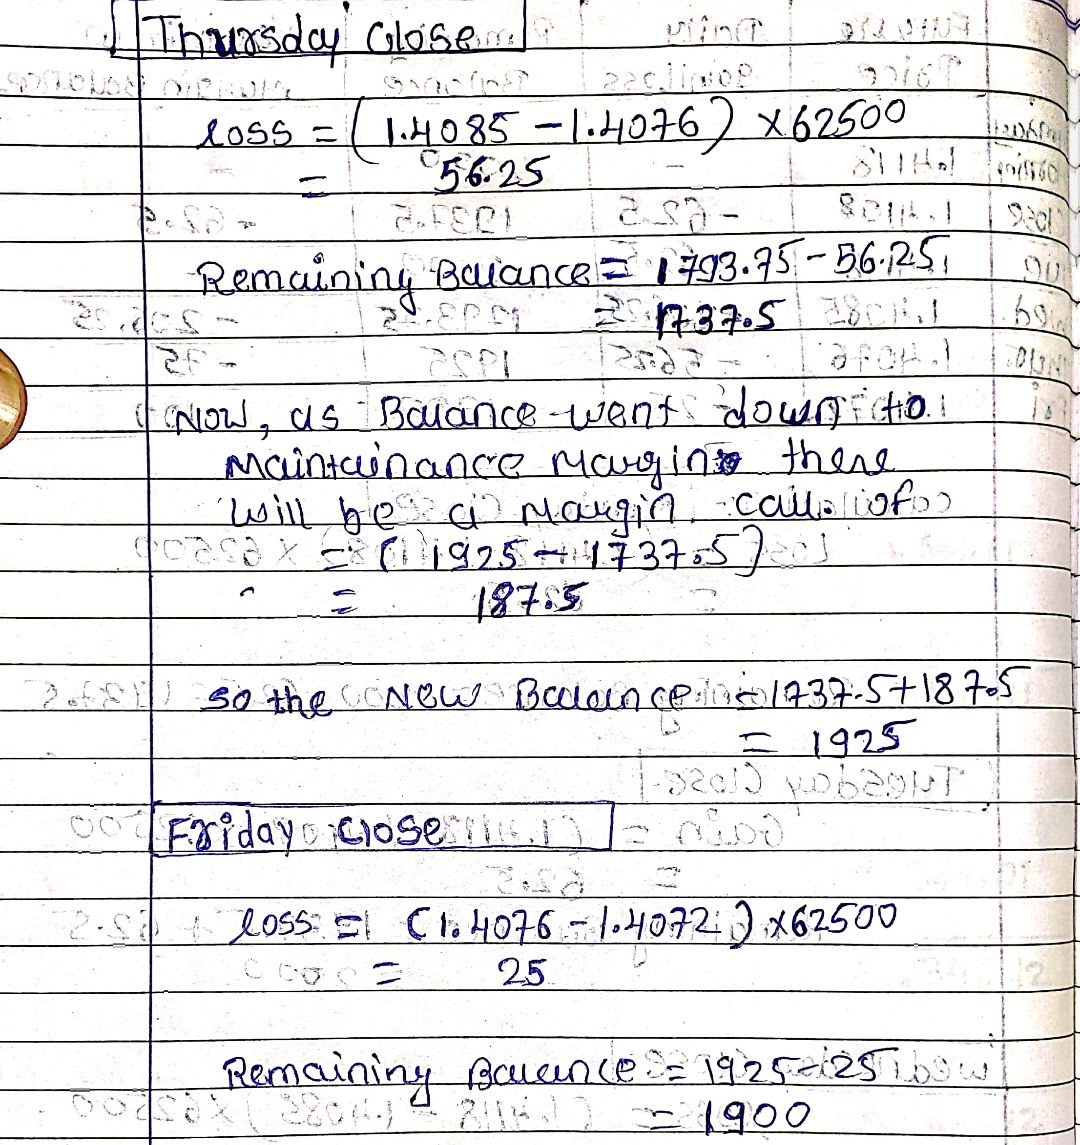 Thursday Close
loss = (1.4085 - 1.4076) × 62500
= 56.25
Remaining Balance = 1793.75 - 56.25
= 1737.5
Now, as Balance went down to
Maintainance Margin there
will be a Margin call.
= (1925 - 1737.5)
= 187.5
so the New Balance = 1737.5 + 187.5
= 1925
Friday close
loss = (1.4076 - 1.4072) × 62500
= 25
Remaining Balance = 1925 - 25
= 1900